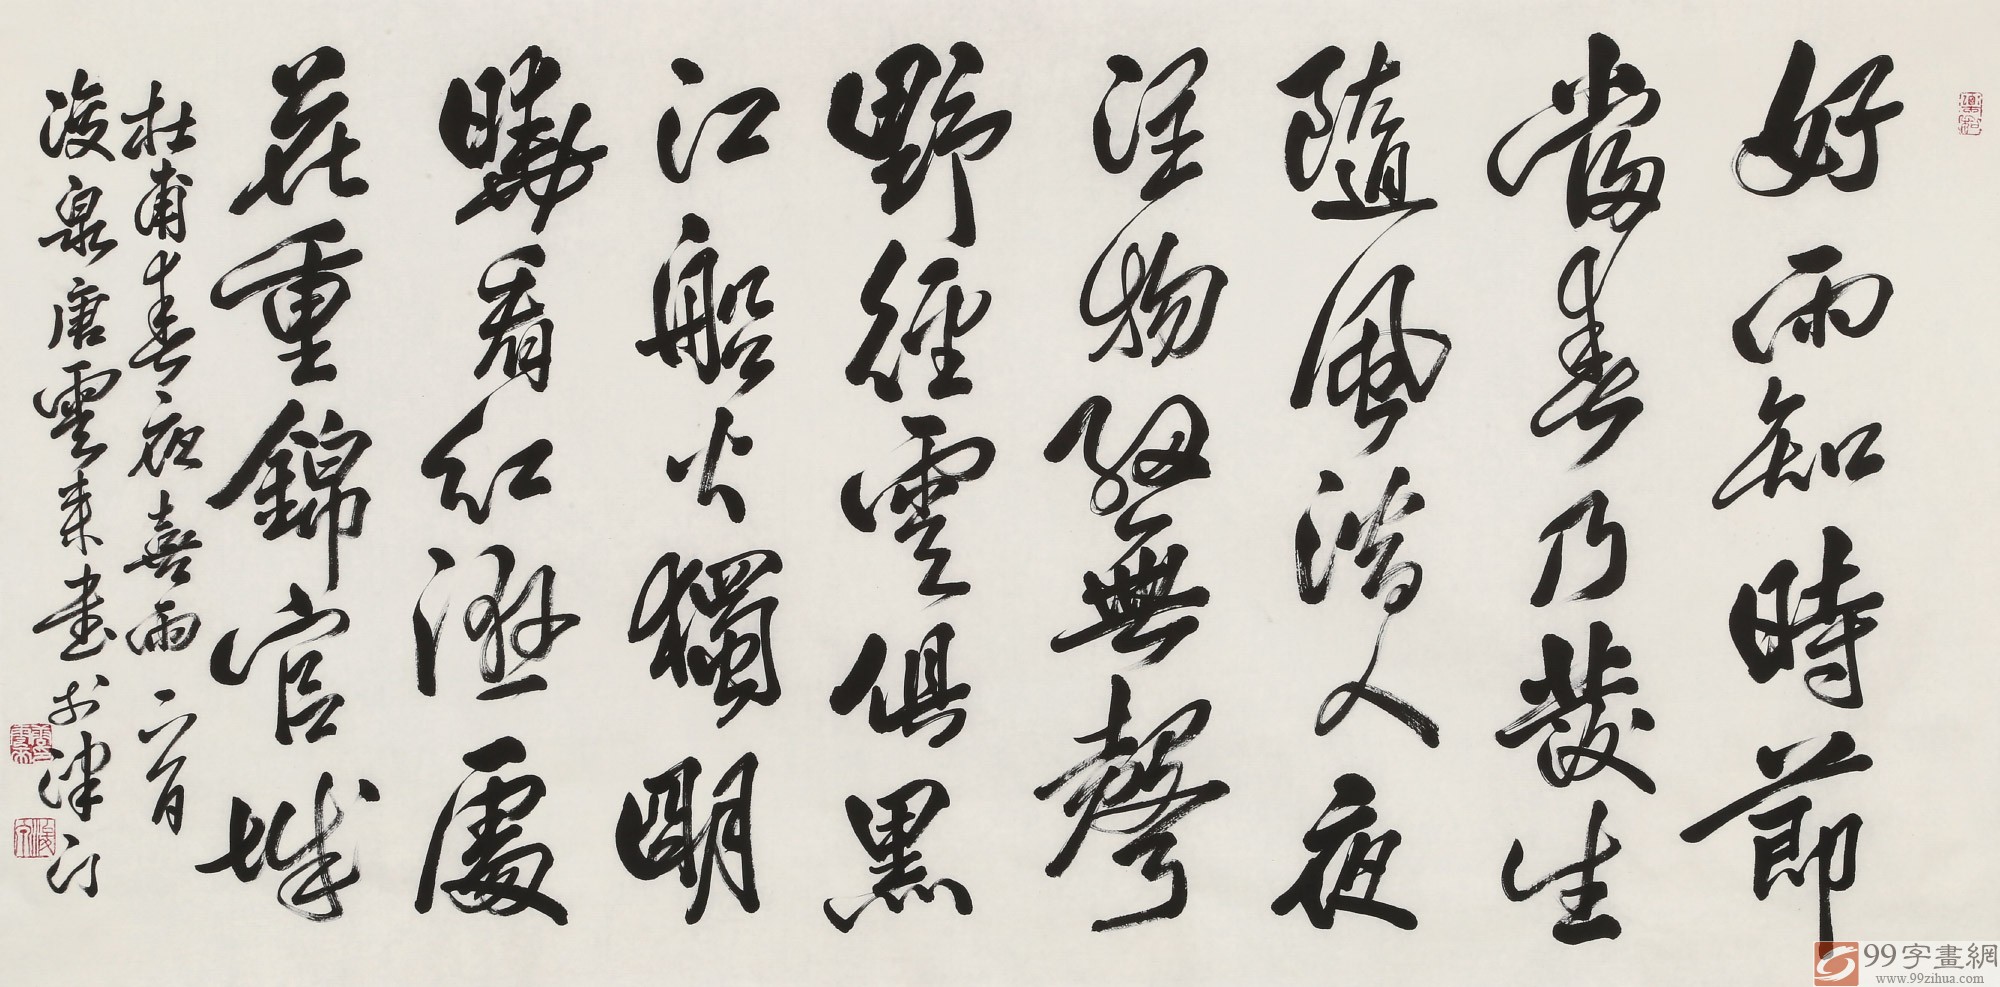 好雨知時節
當春乃發生
隨風潛人夜
潤物細無聲
野徑雲俱黑
江船火獨明
曉看紅濕處
花重錦官城
杜甫春夜喜雨一首
浚泉唐雲來書於津門
99字畫網
www.99zihua.com